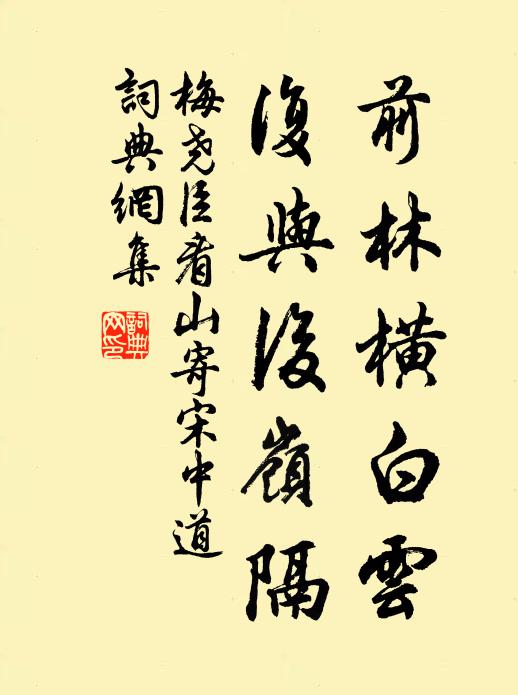 前林橫白雲
復與後嶺隔
梅堯臣看山寄宋中道
詞典網集
詞典网印